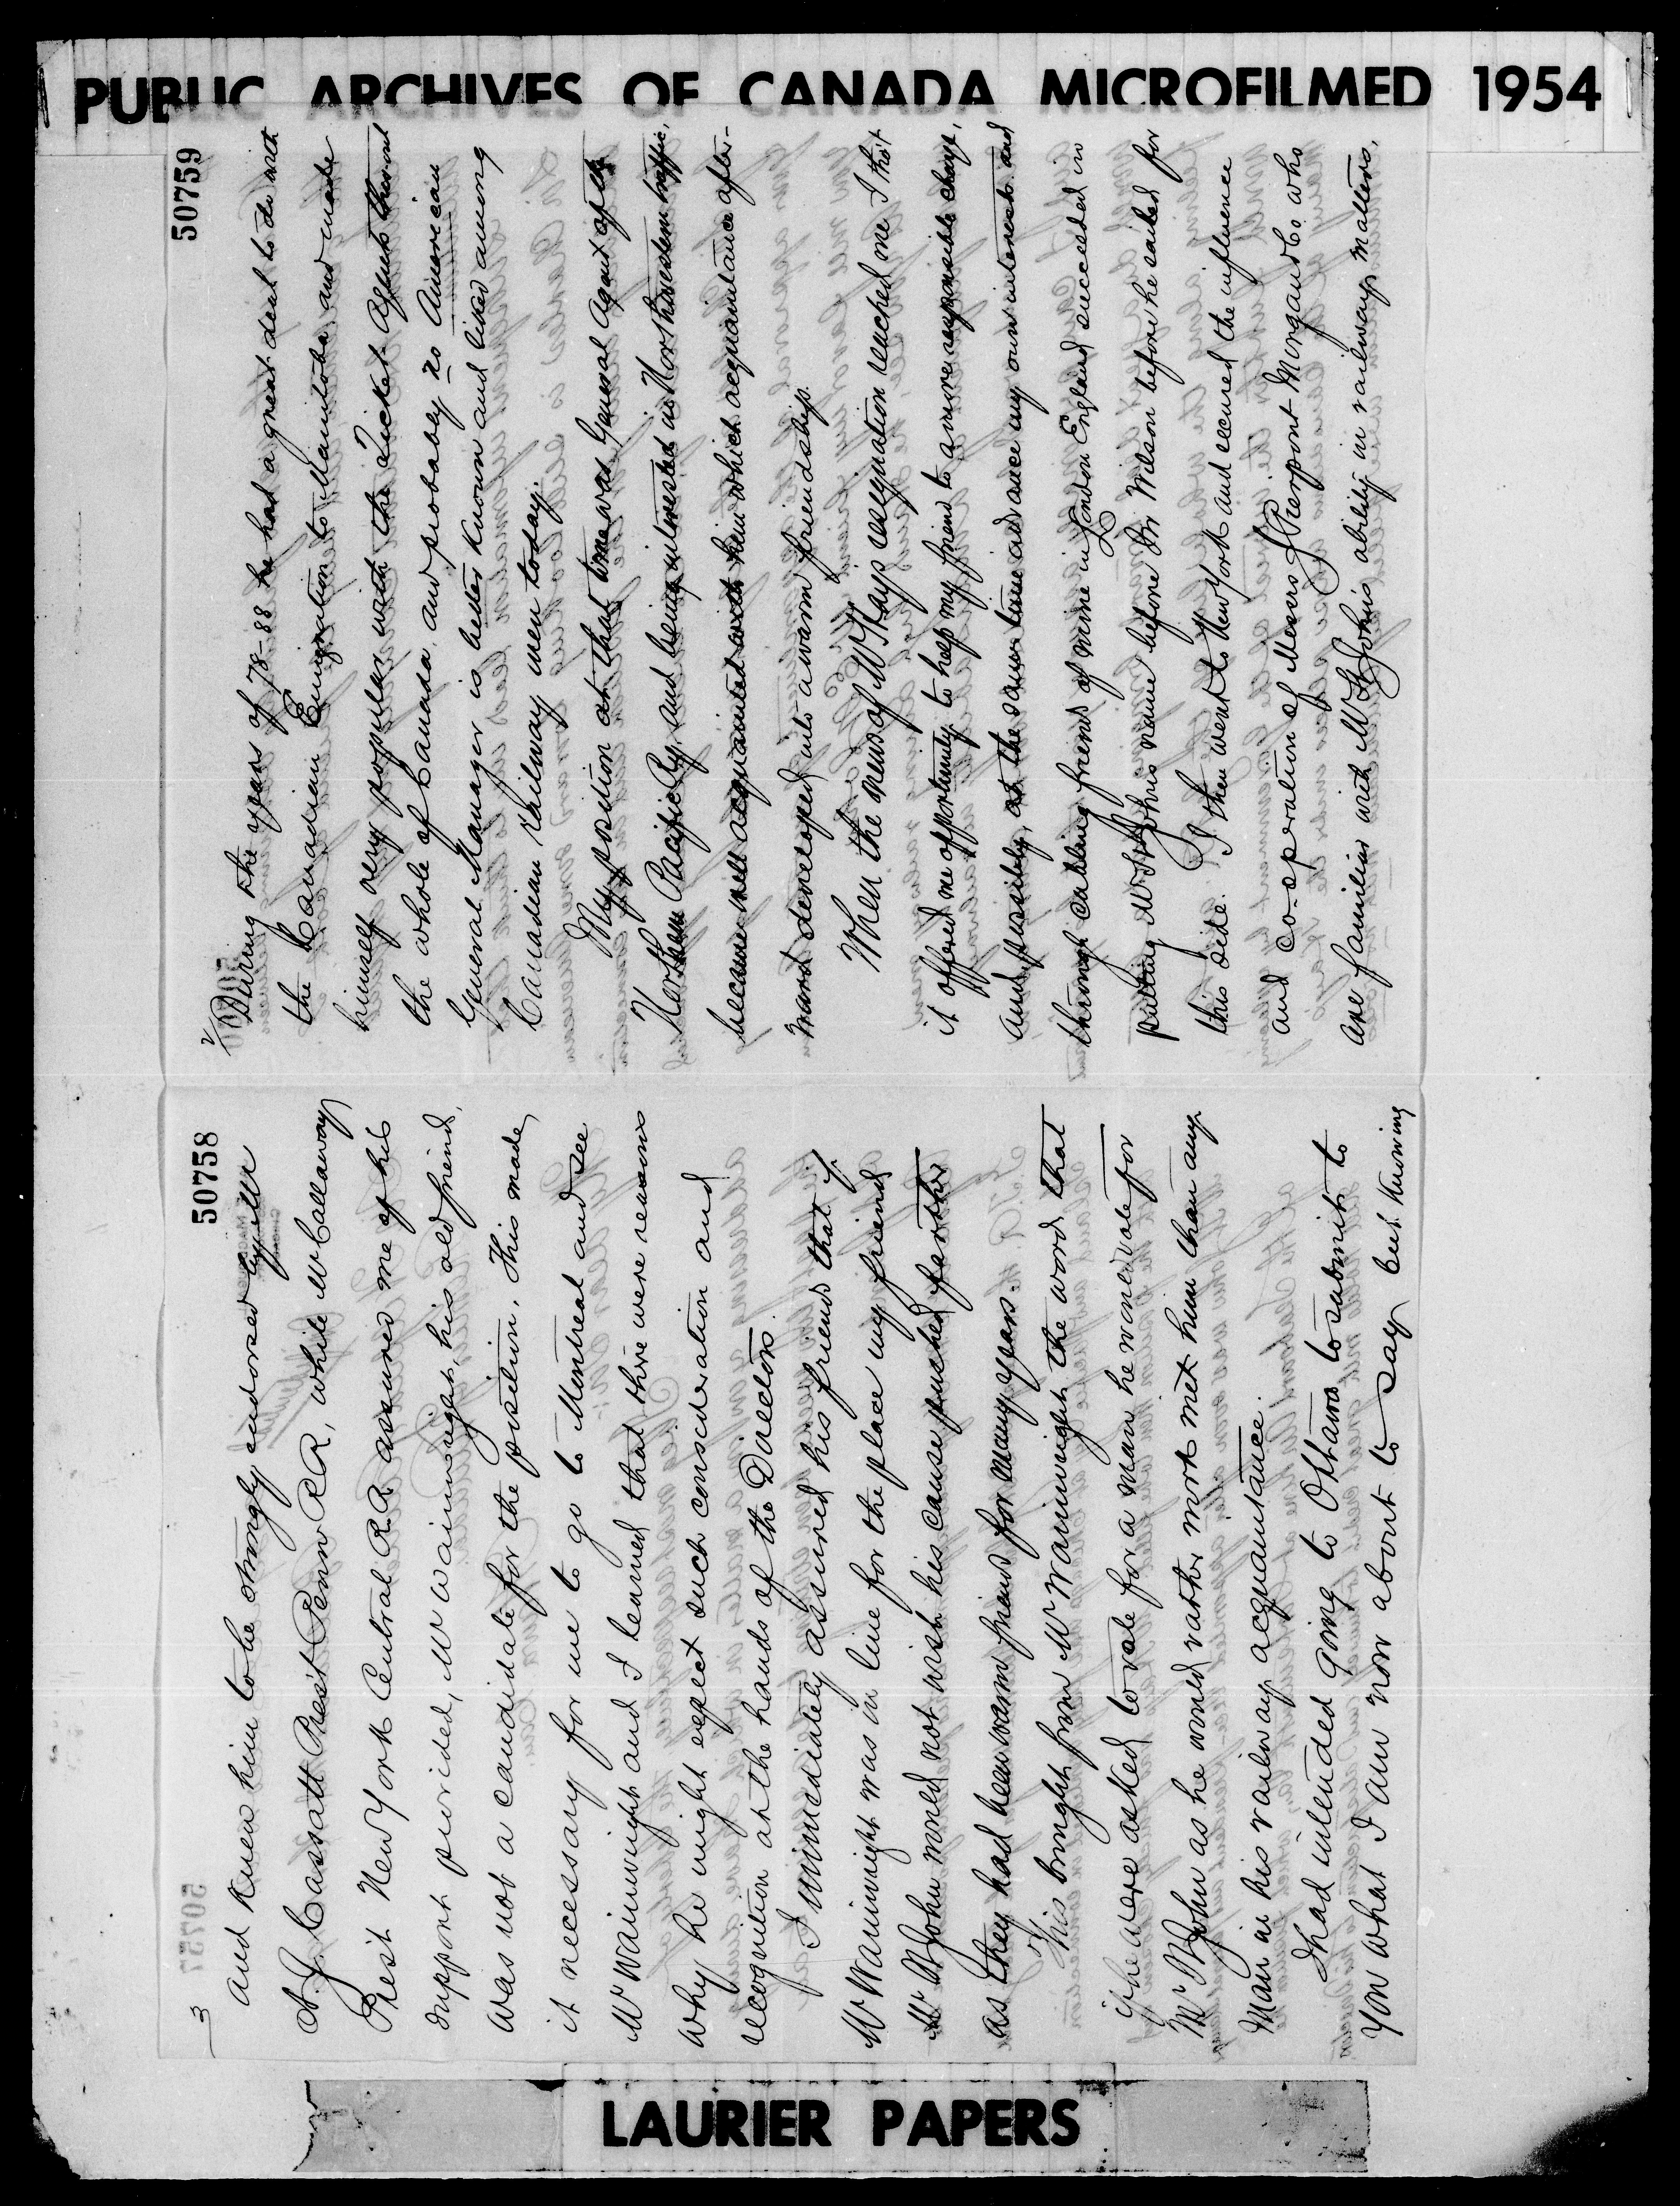 PUBLIC ARCHIVES OF CANADA MICROFILMED 1954
50759
2/
During the years of 78-88 he had a great deal to do with
the Canadian Emigration to Manitoba and made
himself very popular with the Ticket Agents thruout
the whole of Canada, and probably no American
General Manager is better known and liked among
Canadian railway men today.
My position at that time was General Agent of the
Northern Pacific Ry, and being interested in Northwestern traffic,
became well acquainted with him which acquaintance after-
ward developed into a warm friendship.
When the news of Mr Hays resignation reached me I thot
it offered me opportunity to help my friend to a more responsible charge,
and possibly, at the same time advance my own interests and
through cabling friends of mine in London England succeeded in
putting Mr St John's name before Sir Wilson before he sailed for
this side. I then went to New York and secured the influence
and co-operation of Messrs J Pierpont Morgan & Co. who
are familiar with Mr St John's ability in railway matters,
50758
3
and knew him to be strongly endorsed by Mr
A. J. Cassatt Pres't Penn RR, while Mr Callaway
Pres't New York Central RR assured me of his
support provided, Mr Wainwright, his old friend,
was not a candidate for the position. This made
it necessary for me to go to Montreal and see
Mr Wainwright and I learned that there were reasons
why he might expect such consideration and
recognition at the hands of the Directors.
I immediately assured his friends that if
Mr Wainwright was in line for the place my friend
Mr St John would not wish his cause pushed farther
as they had been warm friends for many years.
This brought from Mr Wainwright the word that
if he were asked to vote for a man he would vote for
Mr St John as he would rather work next him than any
man in his railway acquaintance.
I had intended going to Ottawa to submit to
you what I am now about to say but knowing
50757
LAURIER PAPERS